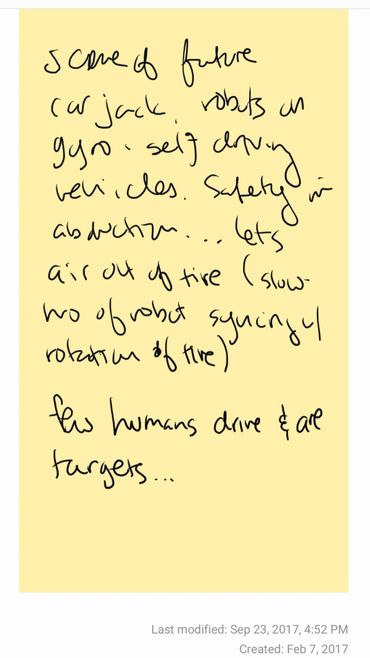 scene of future
car jack. robots on
gyro. self driving
vehicles. Safety in
abduction... lets
air out of tire (slow-
mo of robot syncing w/
rotation of tire)
few humans drive & are
targets...
Last modified: Sep 23, 2017, 4:52 PM
Created: Feb 7, 2017